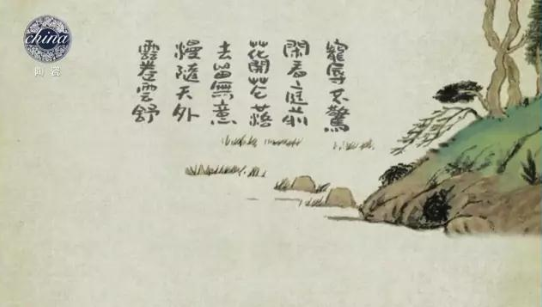 china
陶瓷
寵辱不驚
閑看庭前
花開花落
去留無意
慢隨天外
雲卷雲舒